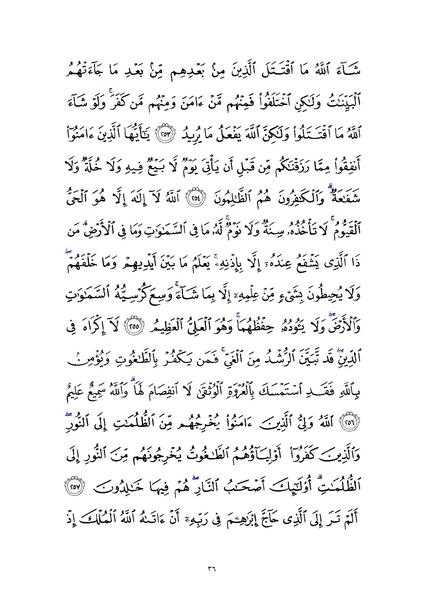 شَآءَ ٱللَّهُ مَا ٱقْتَتَلَ ٱلَّذِينَ مِنۢ بَعْدِهِم مِّنۢ بَعْدِ مَا جَآءَتْهُمُ
ٱلْبَيِّنَٰتُ وَلَٰكِنِ ٱخْتَلَفُوا۟ فَمِنْهُم مَّنْ ءَامَنَ وَمِنْهُم مَّن كَفَرَ ۚ وَلَوْ شَآءَ
ٱللَّهُ مَا ٱقْتَتَلُوا۟ وَلَٰكِنَّ ٱللَّهَ يَفْعَلُ مَا يُرِيدُ ﴿٢٥٣﴾ يَٰٓأَيُّهَا ٱلَّذِينَ ءَامَنُوٓا۟
أَنفِقُوا۟ مِمَّا رَزَقْنَٰكُم مِّن قَبْلِ أَن يَأْتِىَ يَوْمٌ لَّا بَيْعٌ فِيهِ وَلَا خُلَّةٌ وَلَا
شَفَٰعَةٌ ۗ وَٱلْكَٰفِرُونَ هُمُ ٱلظَّٰلِمُونَ ﴿٢٥٤﴾ ٱللَّهُ لَآ إِلَٰهَ إِلَّا هُوَ ٱلْحَىُّ
ٱلْقَيُّومُ ۚ لَا تَأْخُذُهُۥ سِنَةٌ وَلَا نَوْمٌ ۚ لَّهُۥ مَا فِى ٱلسَّمَٰوَٰتِ وَمَا فِى ٱلْأَرْضِ ۗ مَن
ذَا ٱلَّذِى يَشْفَعُ عِندَهُۥٓ إِلَّا بِإِذْنِهِۦ ۚ يَعْلَمُ مَا بَيْنَ أَيْدِيهِمْ وَمَا خَلْفَهُمْ ۖ
وَلَا يُحِيطُونَ بِشَىْءٍ مِّنْ عِلْمِهِۦٓ إِلَّا بِمَا شَآءَ ۚ وَسِعَ كُرْسِيُّهُ ٱلسَّمَٰوَٰتِ
وَٱلْأَرْضَ ۖ وَلَا يَـُٔودُهُۥ حِفْظُهُمَا ۚ وَهُوَ ٱلْعَلِىُّ ٱلْعَظِيمُ ﴿٢٥٥﴾ لَآ إِكْرَاهَ فِى
ٱلدِّينِ ۖ قَد تَّبَيَّنَ ٱلرُّشْدُ مِنَ ٱلْغَىِّ ۚ فَمَن يَكْفُرْ بِٱلطَّٰغُوتِ وَيُؤْمِنۢ
بِٱللَّهِ فَقَدِ ٱسْتَمْسَكَ بِٱلْعُرْوَةِ ٱلْوُثْقَىٰ لَا ٱنفِصَامَ لَهَا ۗ وَٱللَّهُ سَمِيعٌ عَلِيمٌ
﴿٢٥٦﴾ ٱللَّهُ وَلِىُّ ٱلَّذِينَ ءَامَنُوا۟ يُخْرِجُهُم مِّنَ ٱلظُّلُمَٰتِ إِلَى ٱلنُّورِ ۖ
وَٱلَّذِينَ كَفَرُوٓا۟ أَوْلِيَآؤُهُمُ ٱلطَّٰغُوتُ يُخْرِجُونَهُم مِّنَ ٱلنُّورِ إِلَى
ٱلظُّلُمَٰتِ ۗ أُو۟لَٰٓئِكَ أَصْحَٰبُ ٱلنَّارِ ۖ هُمْ فِيهَا خَٰلِدُونَ ﴿٢٥٧﴾
أَلَمْ تَرَ إِلَى ٱلَّذِى حَآجَّ إِبْرَٰهِۦمَ فِى رَبِّهِۦٓ أَنْ ءَاتَىٰهُ ٱللَّهُ ٱلْمُلْكَ إِذْ
٣٦